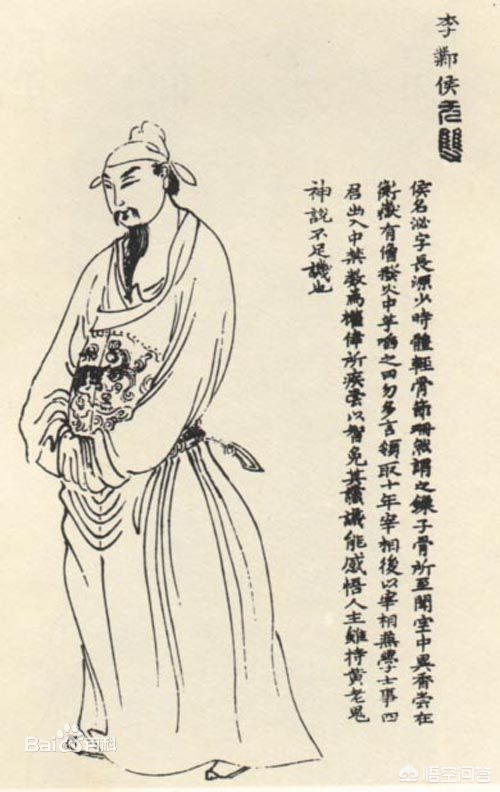 李鄴侯
侯名泌字長源少時體輕骨節珊然謂之鏁子骨所至聞室中異香嘗在
衡嶽有僧撥火中芋啗之曰勿多言領取十年宰相後以宰相兼學士事四
君出入中禁數為權倖所疾嘗以智免其讜議能感悟人主雖持黃老鬼
神說不足譏也
Bai百科
悟空问答